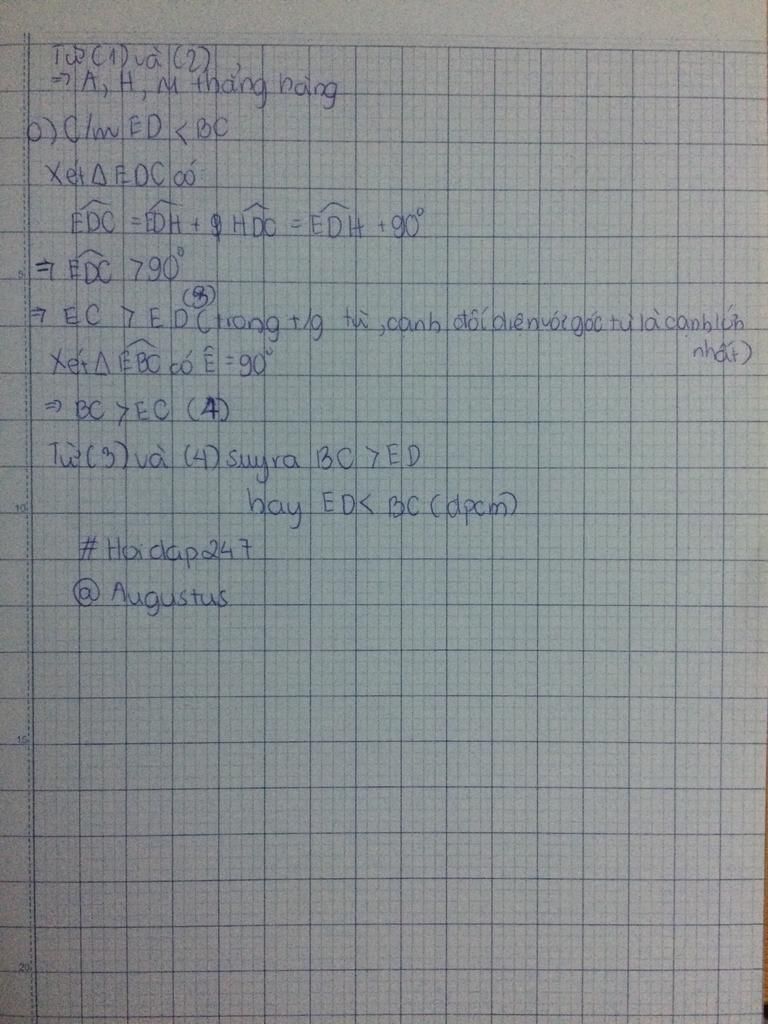 Từ (1) và (2)
=> A, H, M thẳng hàng
b) C/m ED < BC
Xét Δ EDC có
EDC = EDH + HDC = EDH + 90°
=> EDC > 90°
=> EC > ED (3) (trong t/g tù, cạnh đối diện với góc tù là cạnh lớn
nhất)
Xét Δ EBC có Ê = 90°
=> BC > EC (4)
Từ (3) và (4) suy ra BC > ED
hay ED < BC (dpcm)
# Hoidap247
@ Augustus
5
10
15
20